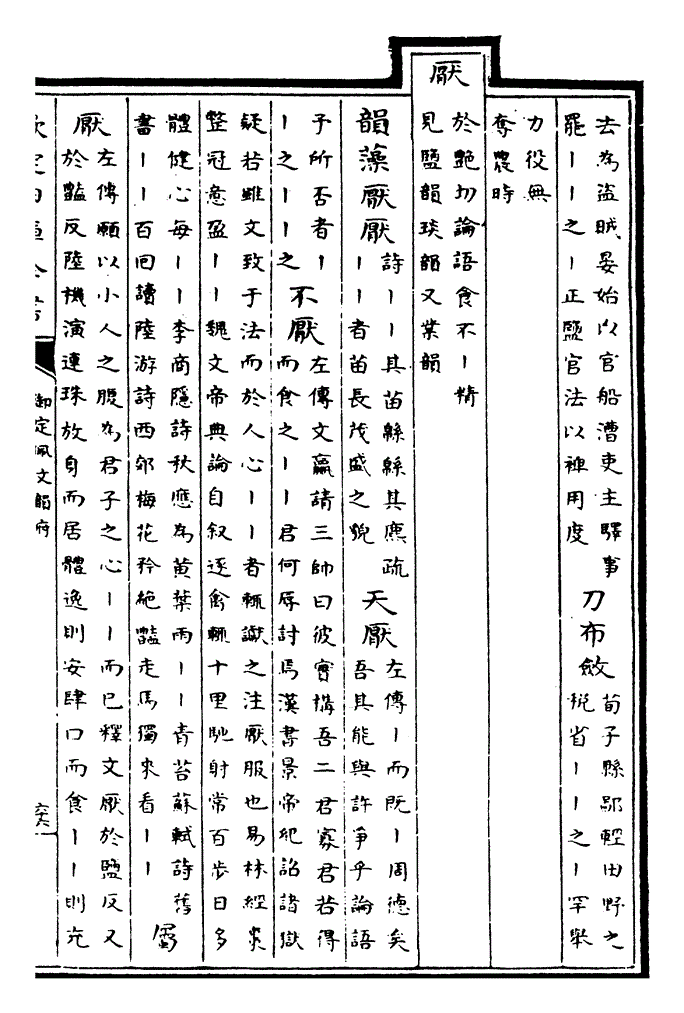 去為盜賊晏始以官船漕吏主驛事
罷丨丨之丨正鹽官法以裨用度
刀布斂
荀子縣鄙輕田野之
税省丨丨之丨罕舉
力役無
奪農時
厭
於艷切論語食不丨精
見鹽韻琰韻又葉韻
韻藻厭厭
詩丨丨其苗緜緜其麃疏
丨丨者苗長茂盛之貌
天厭
左傳丨而既丨周德矣
吾其能與許爭乎論語
子所否者丨
丨之丨丨之
不厭
左傳文嬴請三帥曰彼實搆吾二君寡君若得
而食之丨丨君何辱討焉漢書景帝紀詔諸獄
疑若雖文致于法而於人心丨丨者輒讞之注厭服也易林經棗
整冠意盈丨丨魏文帝典論自叙逐禽輒十里馳射常百步日多
體健心每丨丨李商隱詩秋應為黄葉雨丨丨青苔蘇軾詩舊
書丨丨百回讀陸游詩西郊梅花矜絕豔走馬獨來看丨丨
屬
厭
左傳願以小人之腹為君子之心丨丨而已釋文厭於鹽反又
於豔反陸機演連珠放身而居體逸則安肆口而食丨丨則充
欽定四庫全書
御定佩文韻府